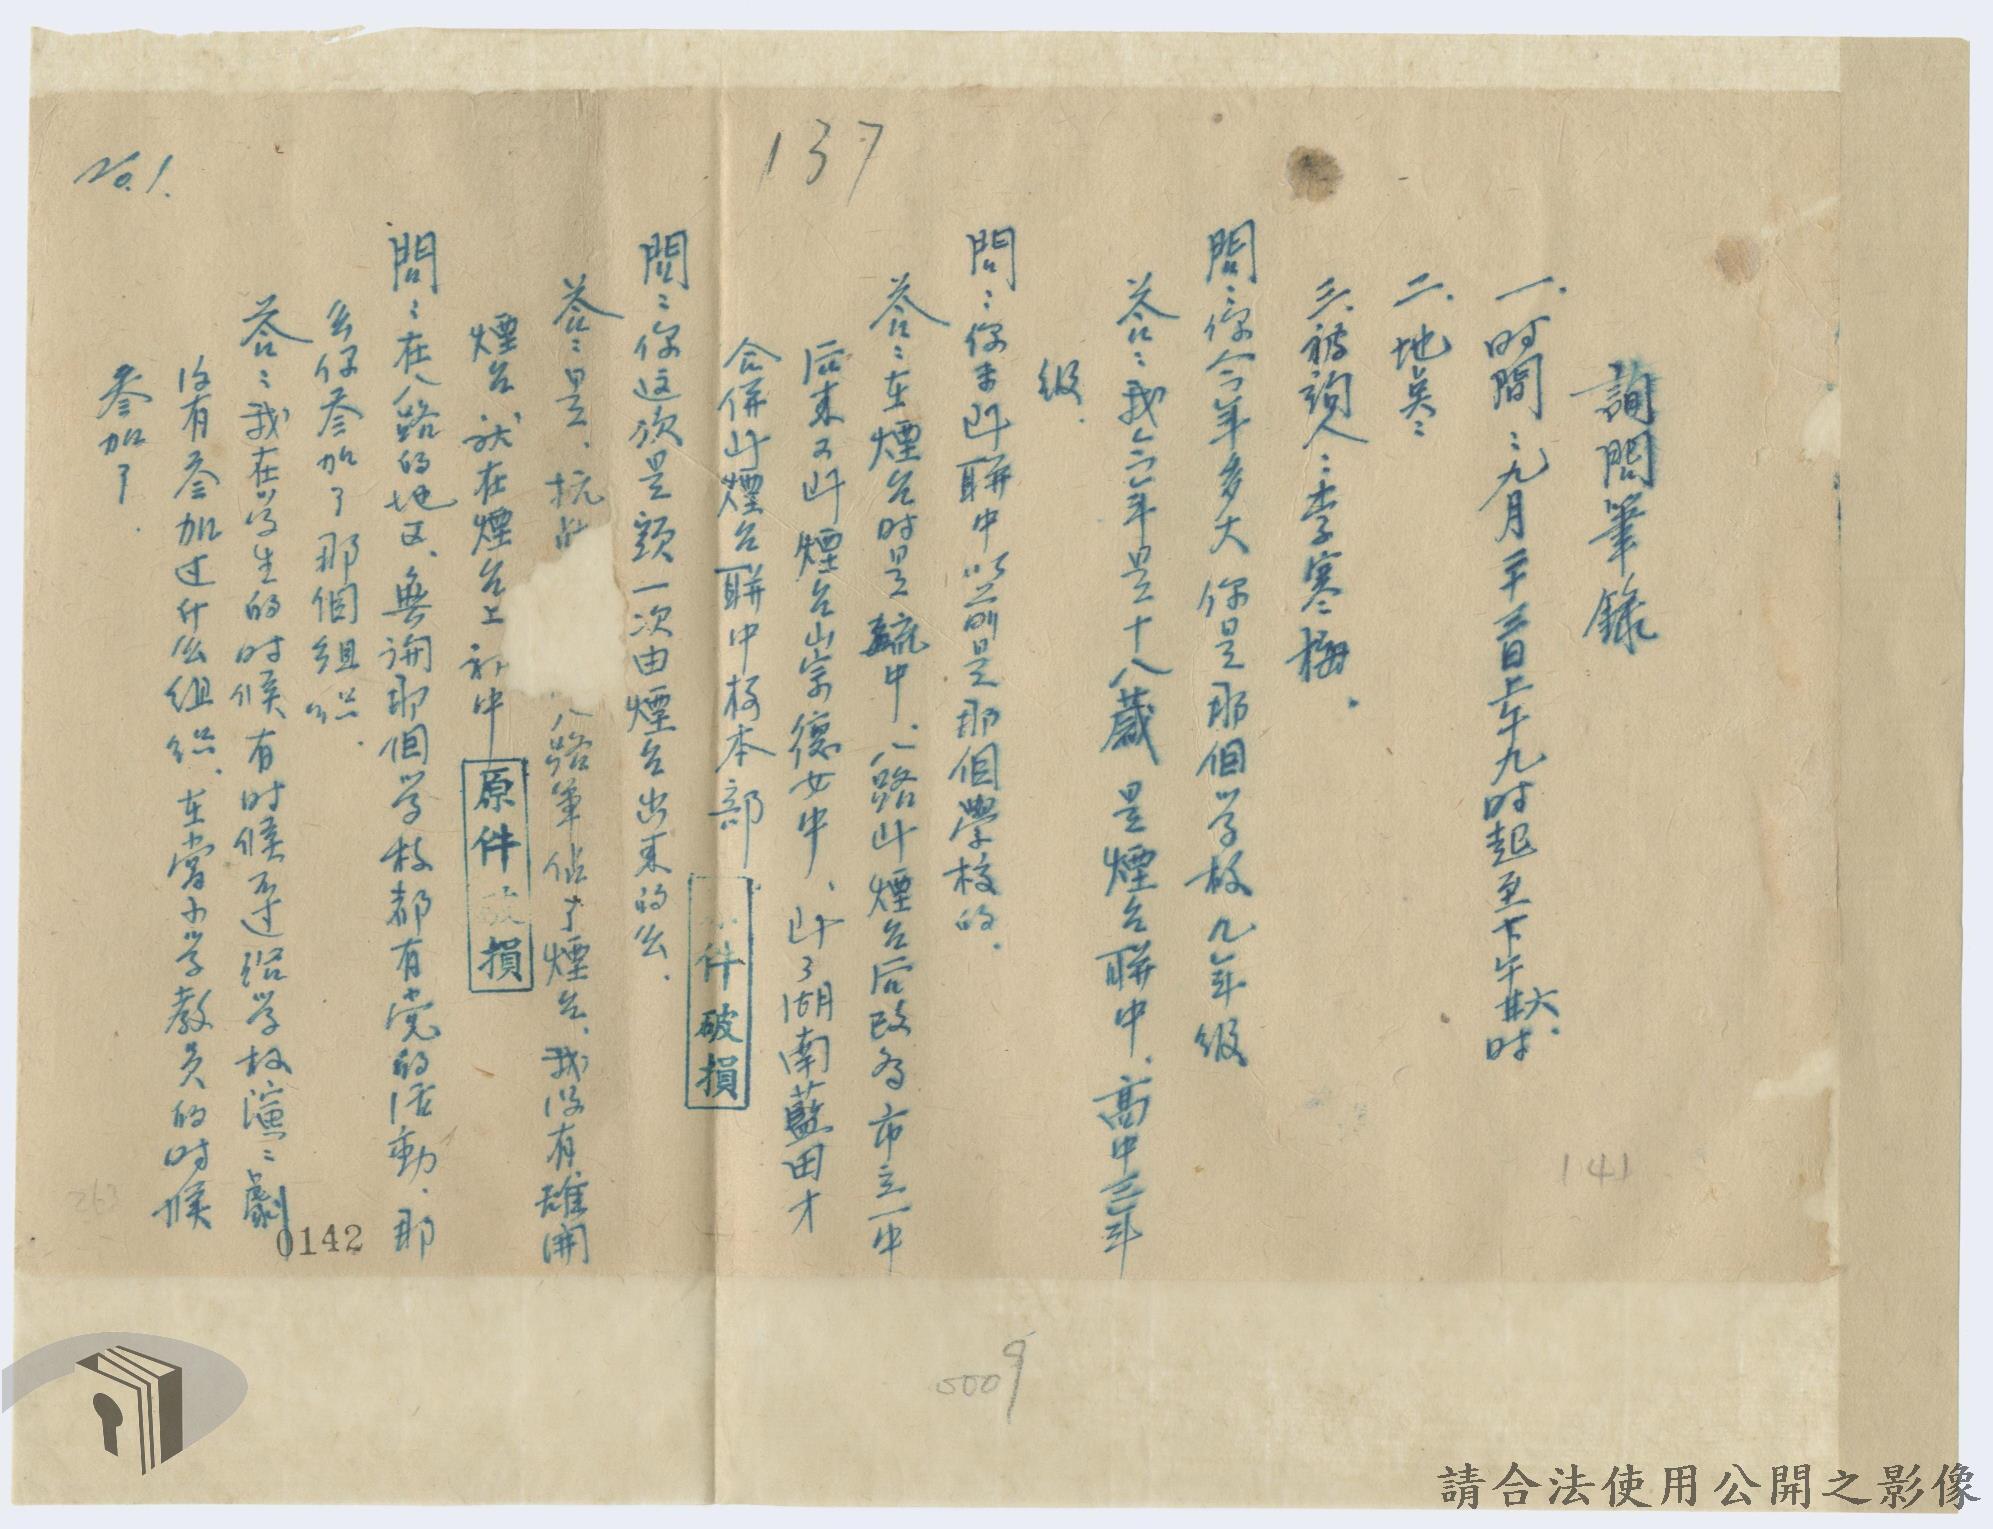 137
No.1.
詢問筆錄
一.时間：九月二十三日上午九时起至下午六时.
二.地点：
三.被詢人：李寒梅.
問：你今年多大你是那個学校几年級
答：我今年是十八歲是煙台聯中、高中三年
級.
問：你未进聯中以前是那個學校的.
答：在煙台时是中、八路进煙台后改为市立一中
后来又进煙台崇德女中、进了湖南藍田才
合併进煙台聯中校本部
原件破損
問：你这次是頭一次由煙台出来的么.
答：是、抗 八路軍佔了煙台、我没有離開
煙台就在煙台上初中
原件破損
問：在八路的地区、無論那個学校都有党的活動、那
么你参加了那個組织.
答：我在学生的时候、有时候不过给学校演演劇
没有参加过什么組织、在當小学教员的时候
参加了.
141
263
0142
5009
請合法使用公開之影像